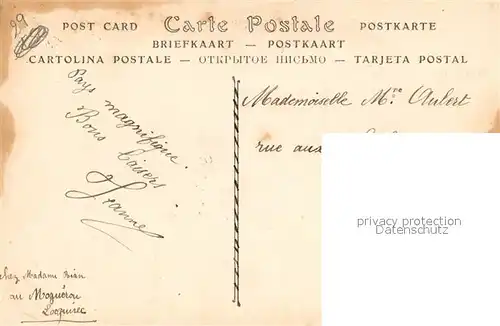 POST CARD Carte Postale POSTKARTE
BRIEFKAART — POSTKAART
CARTOLINA POSTALE — ОТКРЫТОЕ ПИСЬМО — TARJETA POSTAL
Pays magnifique.
Bons baisers
Jeanne
chez Madame Bian
au Moguérou
Locquirec
Mademoiselle Mse Aubert
rue aux
privacy protection
Datenschutz